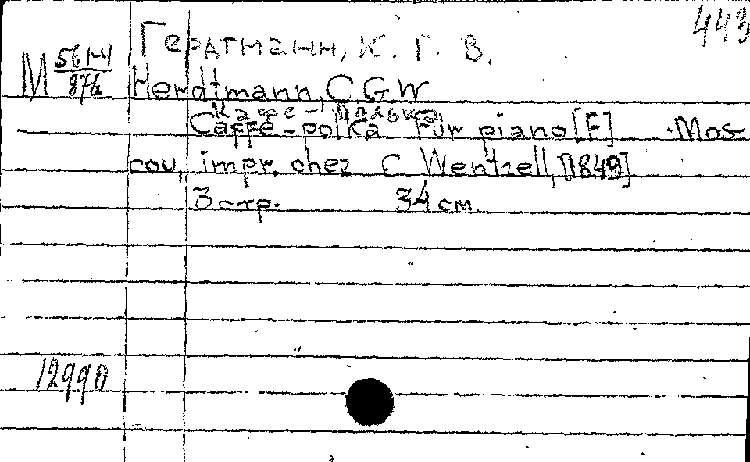 443
Гердтманн, К. Г. В.
М 561-1/876
Herdtmann, C G W
Кафе-полька
Caffé-polka für piano [F] Mos-
cou, impr. chez C Wentzell, [1849]
3 стр. 34 см
12990